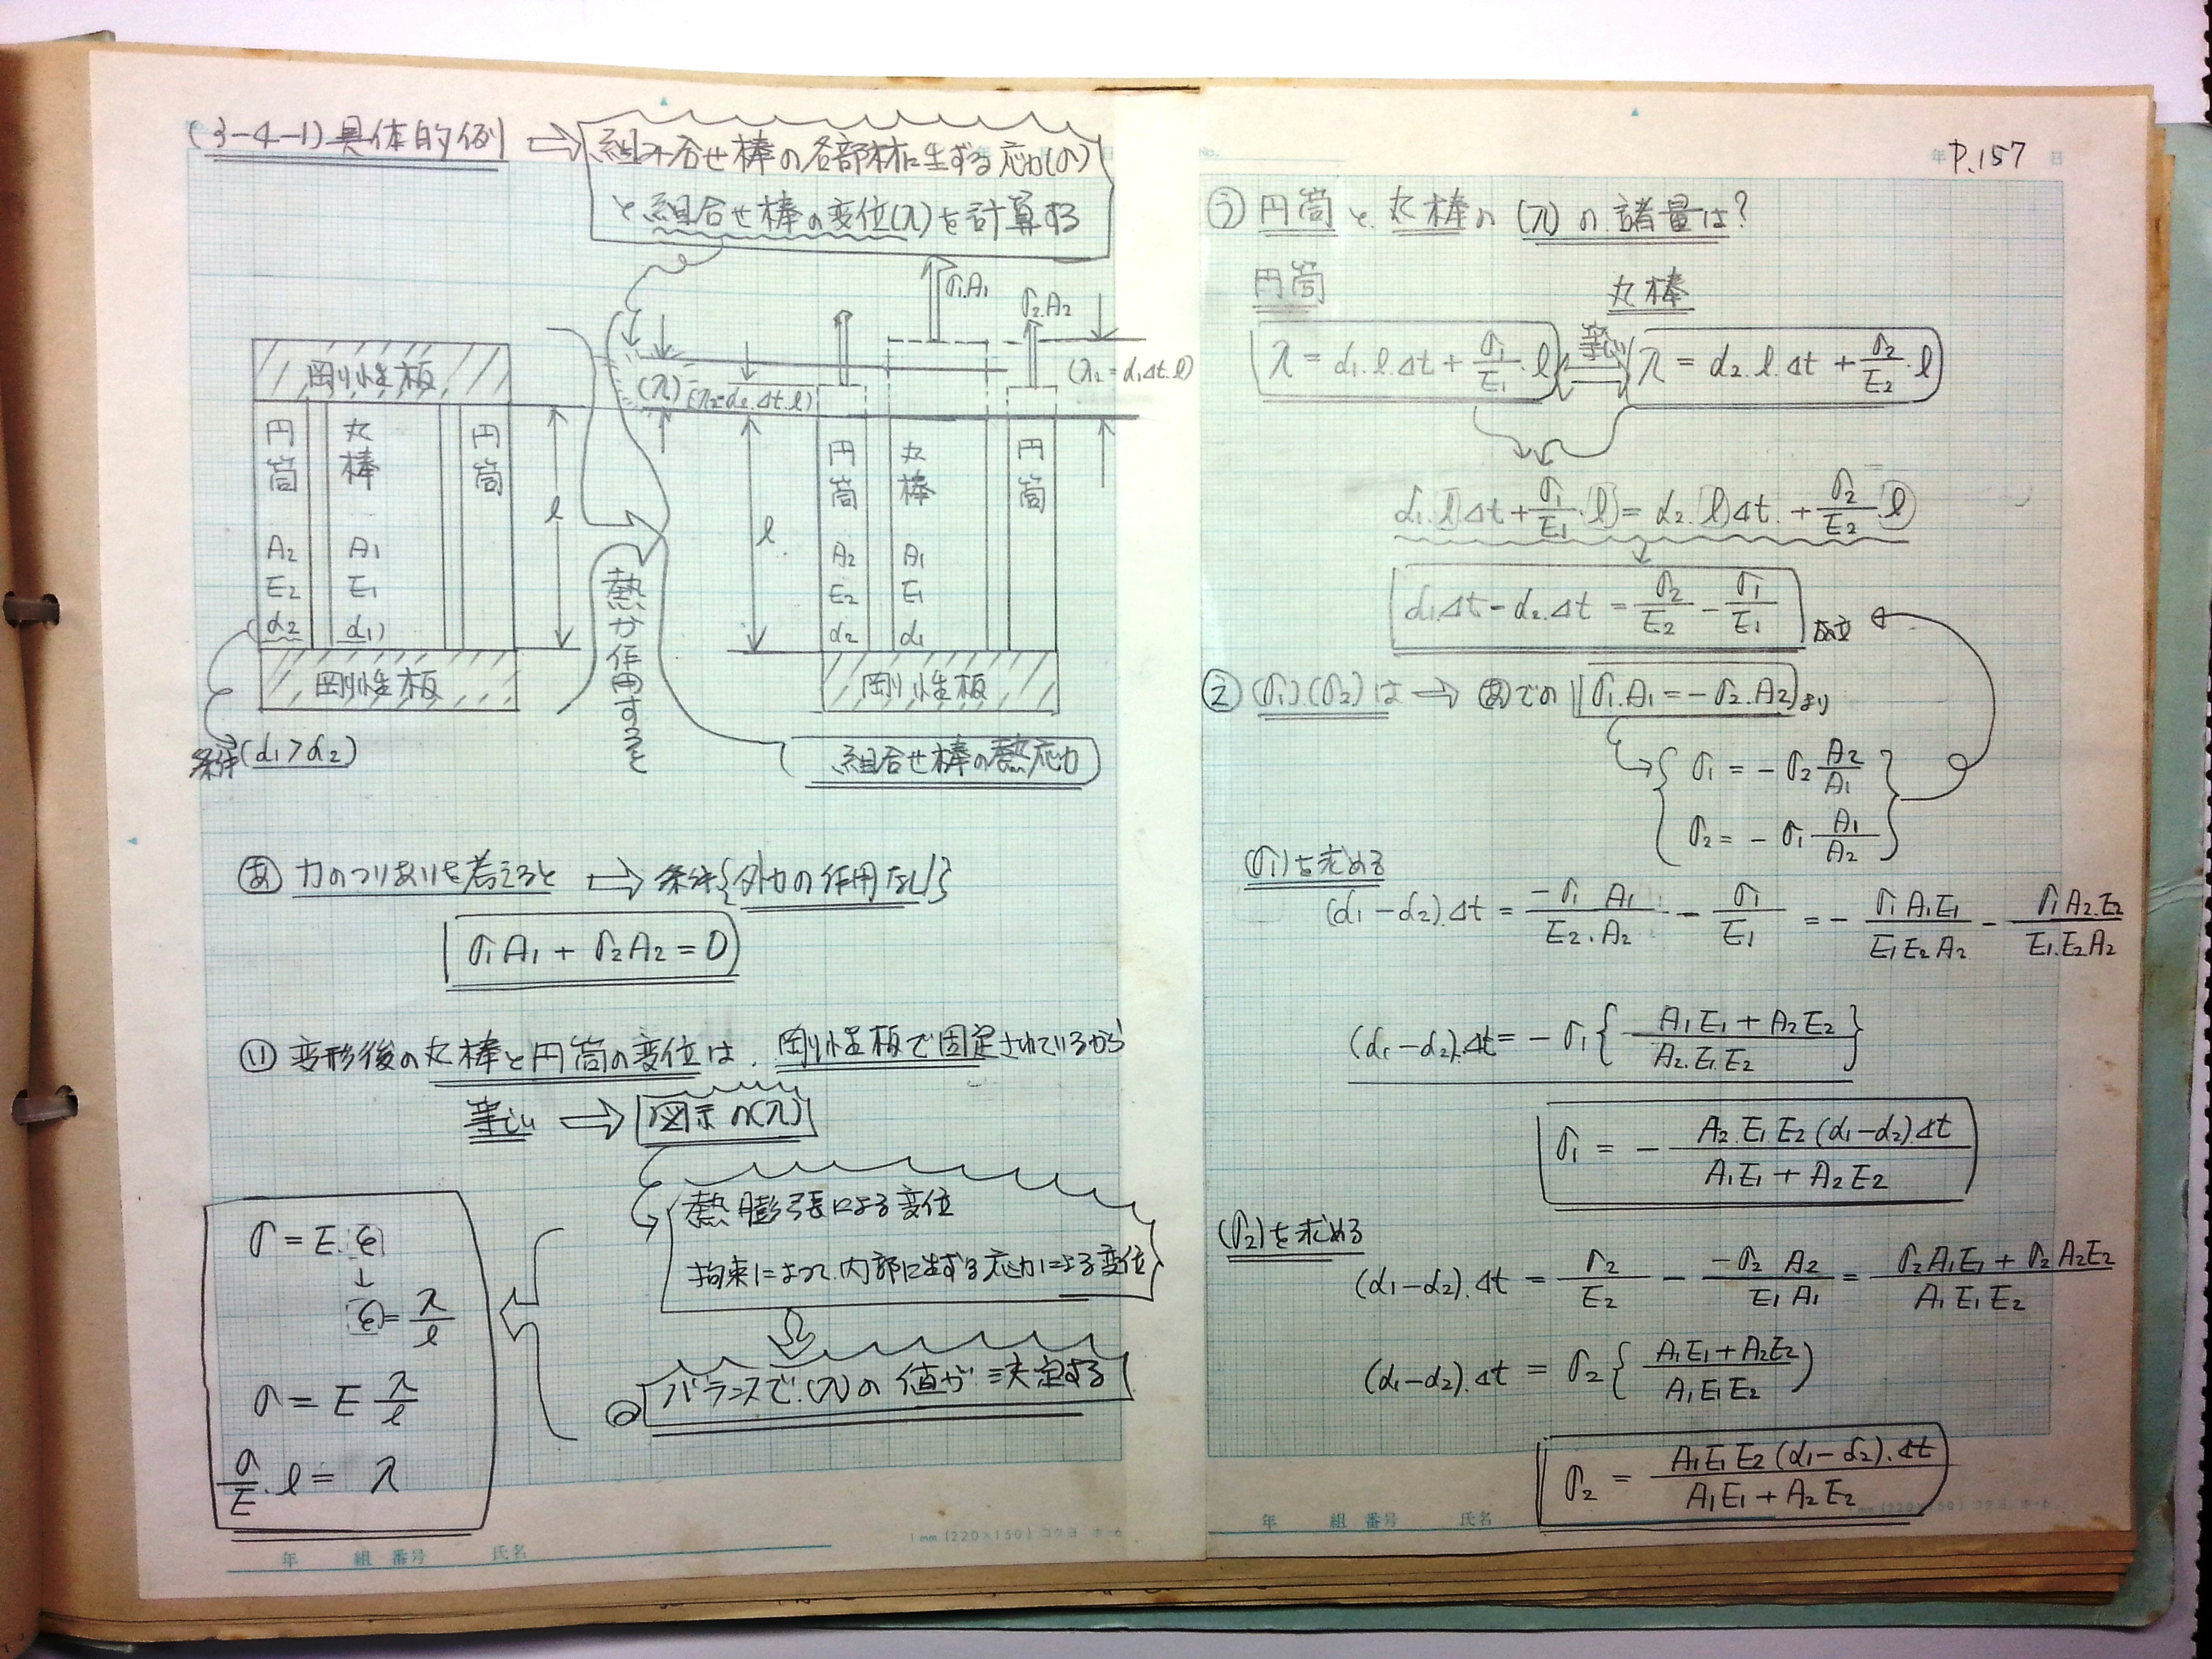 (3-4-1) 具体的例 ⇒ 組み合せ棒の各部材に生ずる応力(σ)
と組合せ棒の変位(λ)を計算する
σ1.A1
σ2.A2
剛性板
(λ)
(λ2=α2.Δt.l)
(λ2=α1Δt.l)
円筒 丸棒 円筒
l
A2 A1
E2 E1
α2 α1)
剛性板
条件(α1>α2)
熱が作用すると
円筒 丸棒 円筒
l
A2 A1
E2 E1
α2 α1
剛性板
組合せ棒の熱応力
あ 力のつりあいを考えると ⇒ 条件{外力の作用なし}
σ1A1 + σ2A2 = 0
い 変形後の丸棒と円筒の変位は、剛性板で固定されているから
等しい ⇒ 図示の(λ)
熱膨張による変位
拘束によって、内部に生ずる応力による変位
バランスで(λ)の値が決定する
σ = E.ε
↓
ε = λ/l
σ = E λ/l
σ/E . l = λ
P.157
う 円筒と丸棒の(λ)の諸量は?
円筒 丸棒
λ = α1.l.Δt + σ1/E1 .l 等しい λ = α2.l.Δt + σ2/E2 .l
α1.l Δt + σ1/E1 .l = α2.l Δt. + σ2/E2 .l
α1.Δt - α2.Δt = σ2/E2 - σ1/E1 成立
え (σ1).(σ2)は → あでの σ1.A1 = -σ2.A2 より
σ1 = -σ2 A2/A1
σ2 = -σ1 A1/A2
(σ1)を求める
(α1-α2).Δt = -σ1 A1/E2.A2 - σ1/E1 = - σ1A1E1/E1E2A2 - σ1A2.E2/E1.E2A2
(α1-α2).Δt = -σ1{A1E1+A2E2/A2.E1.E2}
σ1 = - A2.E1.E2(α1-α2).Δt/A1E1 + A2E2
(σ2)を求める
(α1-α2).Δt = σ2/E2 - -σ2 A2/E1 A1 = σ2A1E1 + σ2A2E2/A1E1E2
(α1-α2).Δt = σ2{A1E1+A2E2/A1E1E2)
σ2 = A1E1E2(α1-α2).Δt/A1E1 + A2E2
年 組 番号 氏名
1mm (220×150) コクヨ ホ-6
年 組 番号 氏名